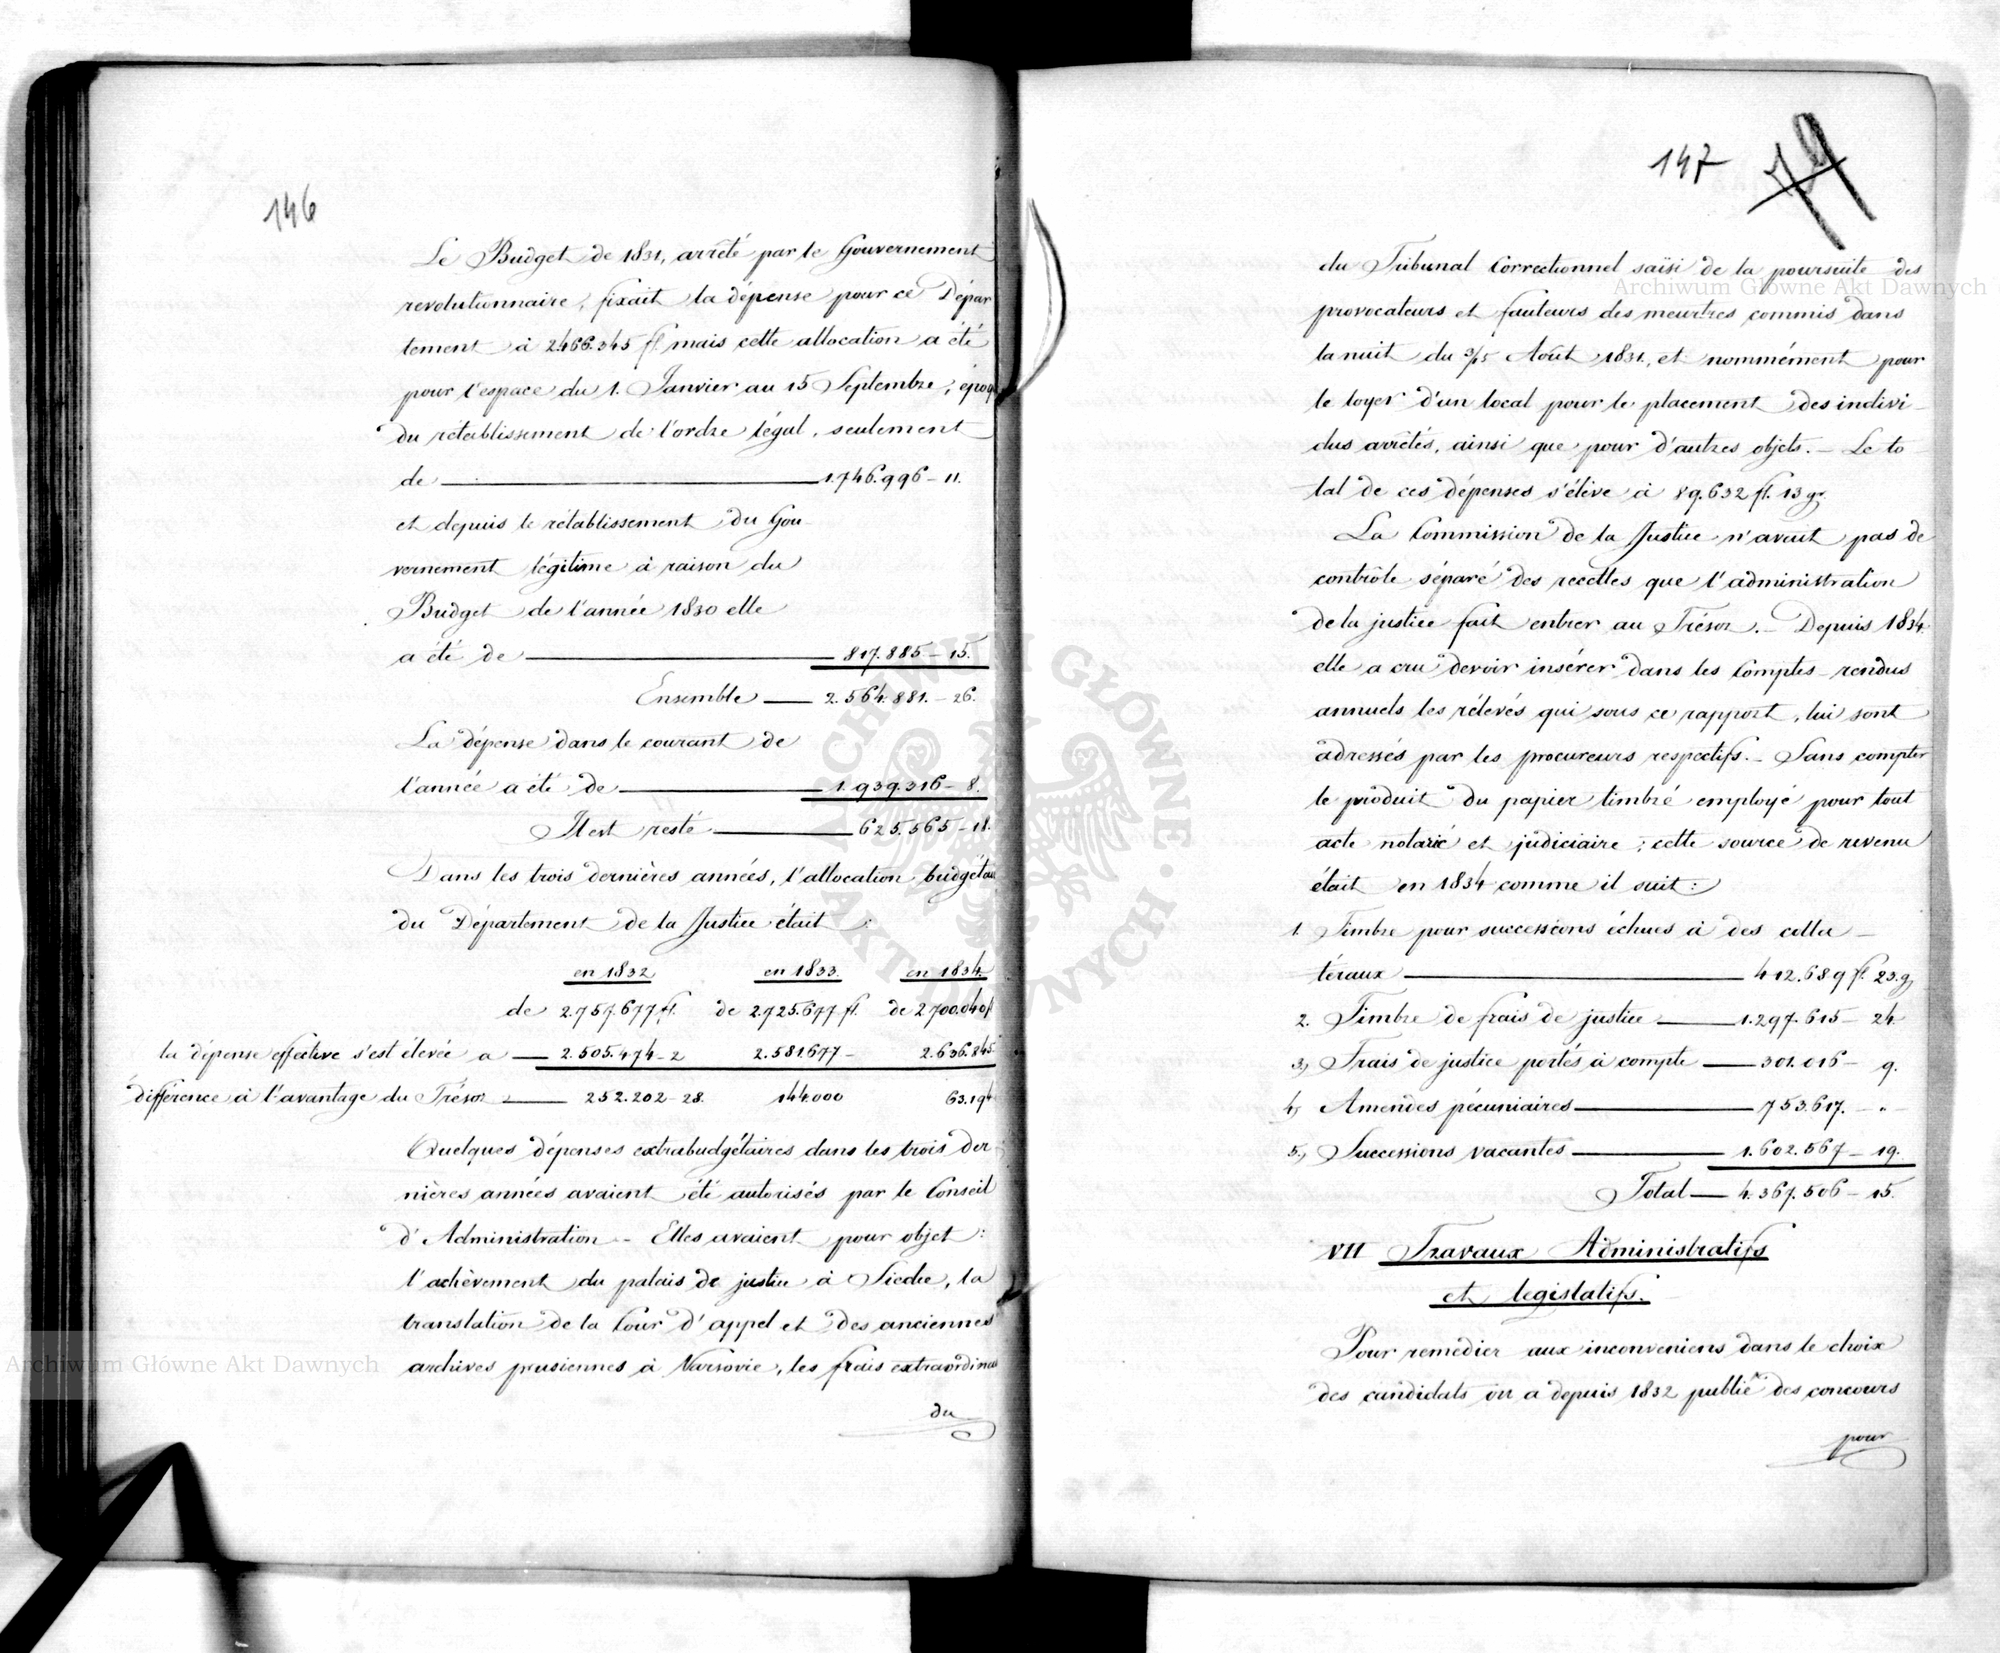 146
Le Budget de 1831, arrêté par le Gouvernement
revolutionnaire, fixait la dépense pour ce Dépar
tement à 2.466.345 fl mais cette allocation a été
pour l'espace du 1. Janvier au 15 Septembre, époq
du rétablissement de l'ordre légal, seulement
de 1.746.996 – 11.
et depuis le rétablissement du Gou-
vernement légitime à raison du
Budget de l'année 1830 elle
a été de 817.885 – 15.
Ensemble 2.564.881. – 26.
La dépense dans le courant de
l'année a été de 1.939.316 – 8.
Il est resté 625.565 – 18.
Dans les trois dernières années, l'allocation budgétai
du Département de la Justice était :
en 1832 en 1833. en 1834.
de 2.757.677 fl. de 2.725.677 fl. de 2.700.040 fl
la dépense effective s'est élevée a 2.505.474 – 2 2.581.677 – 2.636.845
différence à l'avantage du Trésor 252.202 – 28. 144.000 63.194
Quelques dépenses extrabudgétaires dans les trois der-
nières années avaient été autorisés par le Conseil
d'Administration – Elles avaient pour objet :
l'achèvement du palais de justice à Siedce, la
translation de la Cour d'appel et des anciennes
archives prusiennes à Varsovie, les frais extraordinai
du
147
du Tribunal Correctionnel saïsi de la poursuite des
provocateurs et fauteurs des meurtres commis dans
la nuit du 3/15 Août 1831, et nommément pour
le loyer d'un local pour le placement des indivi-
dus arrêtés, ainsi que pour d'autres objets. – Le to
tal de ces dépenses s'élève à 89.632 fl. 13 gr.
La Commission de la Justice n'avait pas de
contrôle séparé des recettes que l'administration
de la justice fait entrer au Trésor. – Depuis 1834
elle a cru devoir insérer dans les Comptes-rendus
annuels les rélévés qui sous ce rapport, lui sont
adressés par les procureurs respectifs. – Sans compter
le produit du papier timbré employé pour tout
acte notarié et judiciaire ; cette source de revenu
était en 1834 comme il suit :
1. Timbre pour successions échues à des colla –
téraux 412.689 fl. 23. g
2. Timbre de frais de justice 1.297.615 – 24.
3, Frais de justice portés à compte 301.016 – 9.
4, Amendes pécuniaires 753.617. – " –
5, Successions vacantes 1.602.567 – 19.
Total 4.367.506 – 15.
VII Travaux Administratifs
et legislatifs.
Pour remedier aux inconveniens dans le choix
des candidats on a depuis 1832 publié des concours
pour
Archiwum Główne Akt Dawnych
Archiwum Główne Akt Dawnych
ARCHIWUM GŁÓWNE AKT DAWNYCH